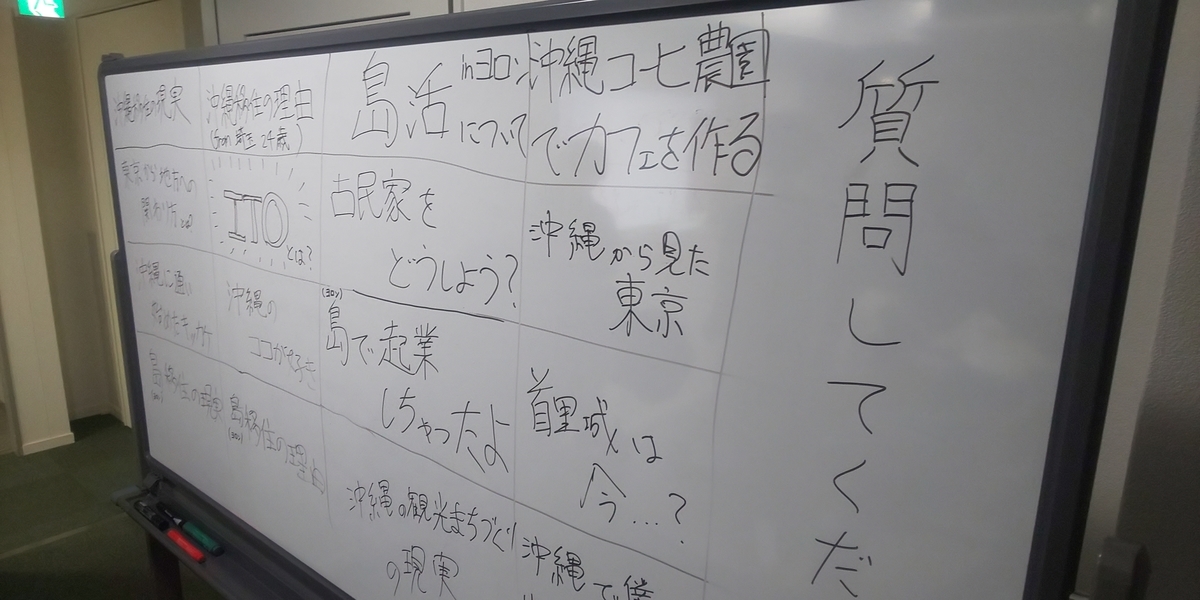 質問してくだ
沖縄移住の現実
沖縄移住の理由
(from 埼玉 24歳)
島活 inヨロン
について
沖縄コーヒ農園
でカフェを作る
東京から地方への
関わり方とは?
ITOとは?
古民家を
どうしよう?
沖縄から見た
東京
沖縄に通い
始めたきっかけ
沖縄の
ココが好き
(ヨロン)
島で起業
しちゃったよ
首里城は
今…?
島移住の現実
島移住の理由
沖縄の観光まちづくり
の現実
沖縄で